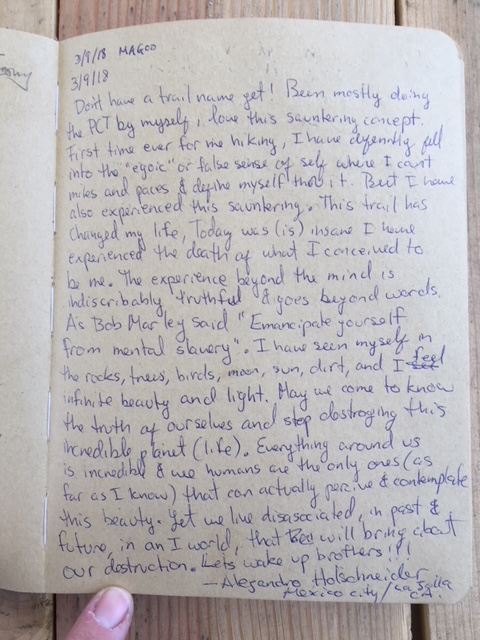 3/8/18 MAGOO
3/9/18
Dont have a trail name yet! Been mostly doing
the PCT by myself, i love this sauntering concept.
First time ever for me hiking, I have defenitly fell
into the "egoic" or false sense of self where I count
miles and paces & define myself thru it. But I have
also experienced this sauntering. This trail has
changed my life, Today was (is) insane I have
experienced the death of what I conceived to
be me. The experience beyond the mind is
indiscribably truthful & goes beyond words.
As Bob Marley said "Emancipate yourself
from mental slavery". I have seen myself in
the rocks, trees, birds, moon, sun, dirt, and I feel
infinite beauty and light. May we come to know
the truth of ourselves and stop distroging this
incredible planet (life). Everything around us
is incredible & we humans are the only ones (as
far as I know) that can actually percive & contemplate
this beauty. Yet we live disasociated, in past &
future, in an I world, that will bring about
our dostruction. Lets wake up brothers!!!
— Alejandro Holschneider
Mexico city/
CA.